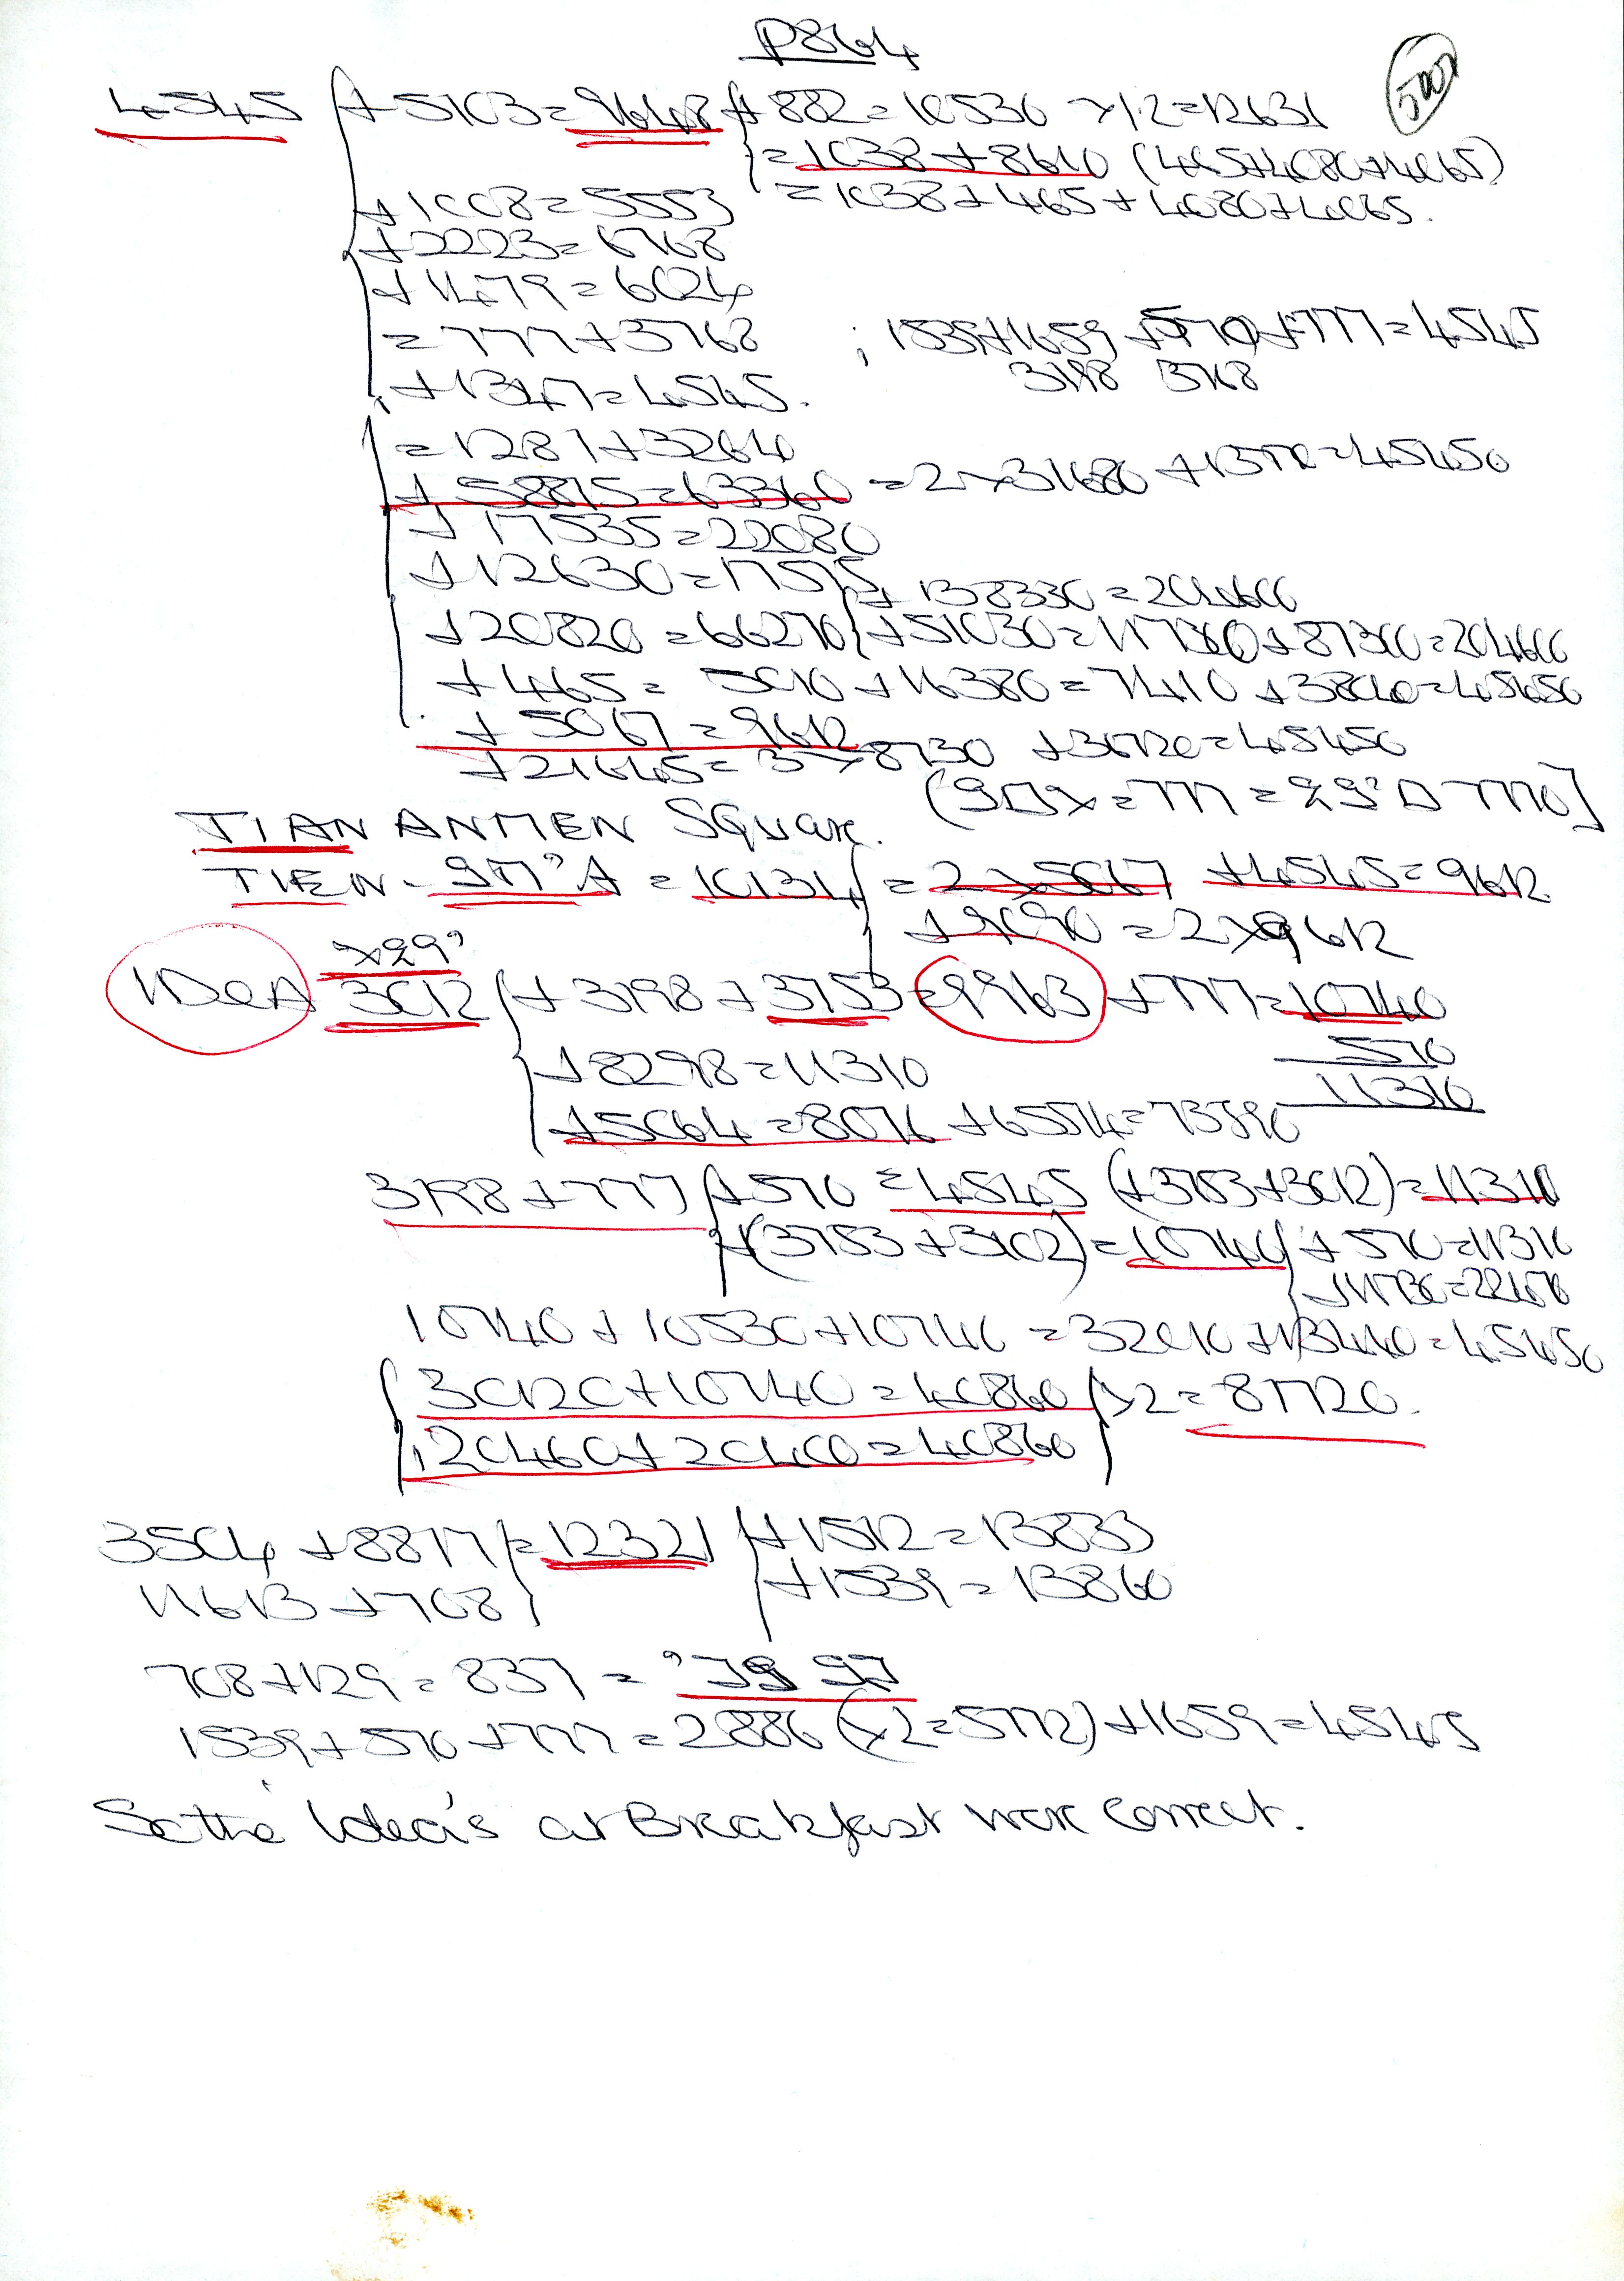 P864
4545 + 5103 = 9648 + 882 = 10530 × 1.2 = 12631
= 1038 + 8610 (465 + 4080 + 4065)
+ 1008 = 5553 = 1038 + 465 + 4080 + 4065.
+ 2223 = 6768
+ 1479 = 6024
= 777 + 3768 ; 1539 + 1659 + 570 + 777 = 4545
3198 3768
+ 1347 = 4545.
= 1281 + 3264
+ 58815 = 63360 = 2 × 31680 + 13770 = 45450
+ 17535 = 22080
+ 12630 = 17575
+ 138330 = 204600
+ 20820 = 66270 + 51030 = 117300 + 87300 = 204600
+ 465 = 5010 + 16380 = 71410 + 38040 = 45450
+ 5067 = 9612
+ 21645 = 3 × 8730 + 36720 = 45450
TIAN ANMEN Square.
TIEN - = 10134 = 2 × 5067 + 4545 = 9612
+ 9090 = 2 × 9612
×99'
IDEA 3012 + 3198 + 3753 = 9963 + 777 = 10740
+ 8298 = 11310 570
11310
+ 5064 = 8076 + 65714 = 73890
3198 + 777 + 570 = 4545 (+3753 + 3012) = 11310
+ (3753 + 3102) = 10740 + 570 = 11310
+ 11730 = 22470
10740 + 10530 + 10740 = 32010 + 13440 = 45450
30120 + 10740 = 40860 × 2 = 81720.
20460 + 20400 = 40860
3504 + 8817 = 12321 + 1512 = 13833
11613 + 708 + 1539 = 13860
708 + 129 = 837 =
1539 + 570 + 777 = 2886 (×2 = 5772) + 1659 = 4545
So the Idea's at Breakfast were correct.